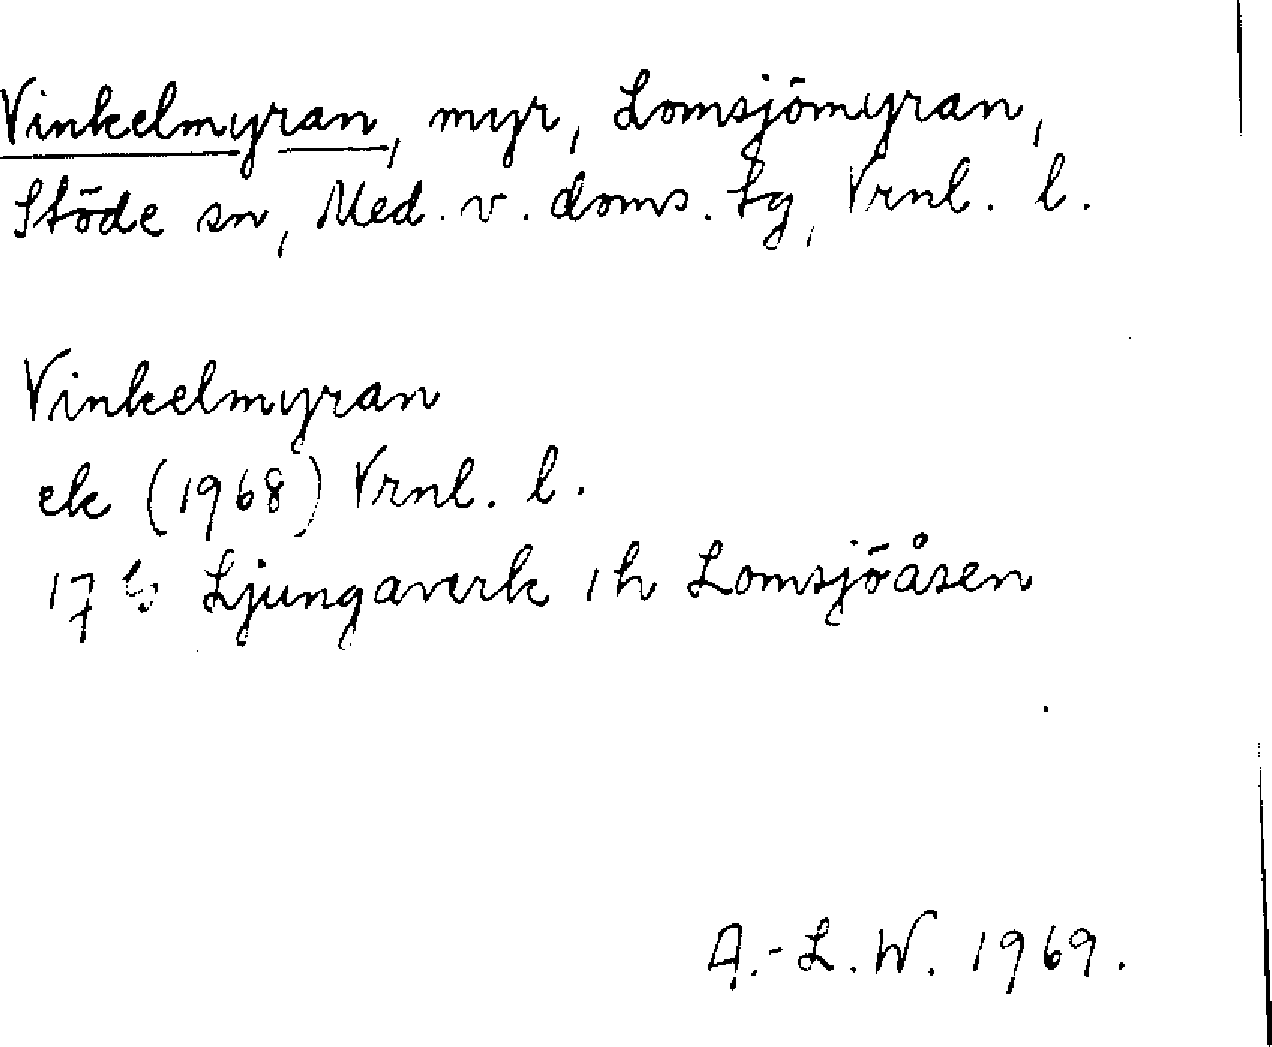 Vinkelmyran, myr, Lomsjömyran,
Stöde sn, Med. v. doms. tg, Vrnl. l.
Vinkelmyran
ek (1968) Vrnl. l.
17 Ljungaverk 1h Lomsjöåsen
A.-L. W. 1969.